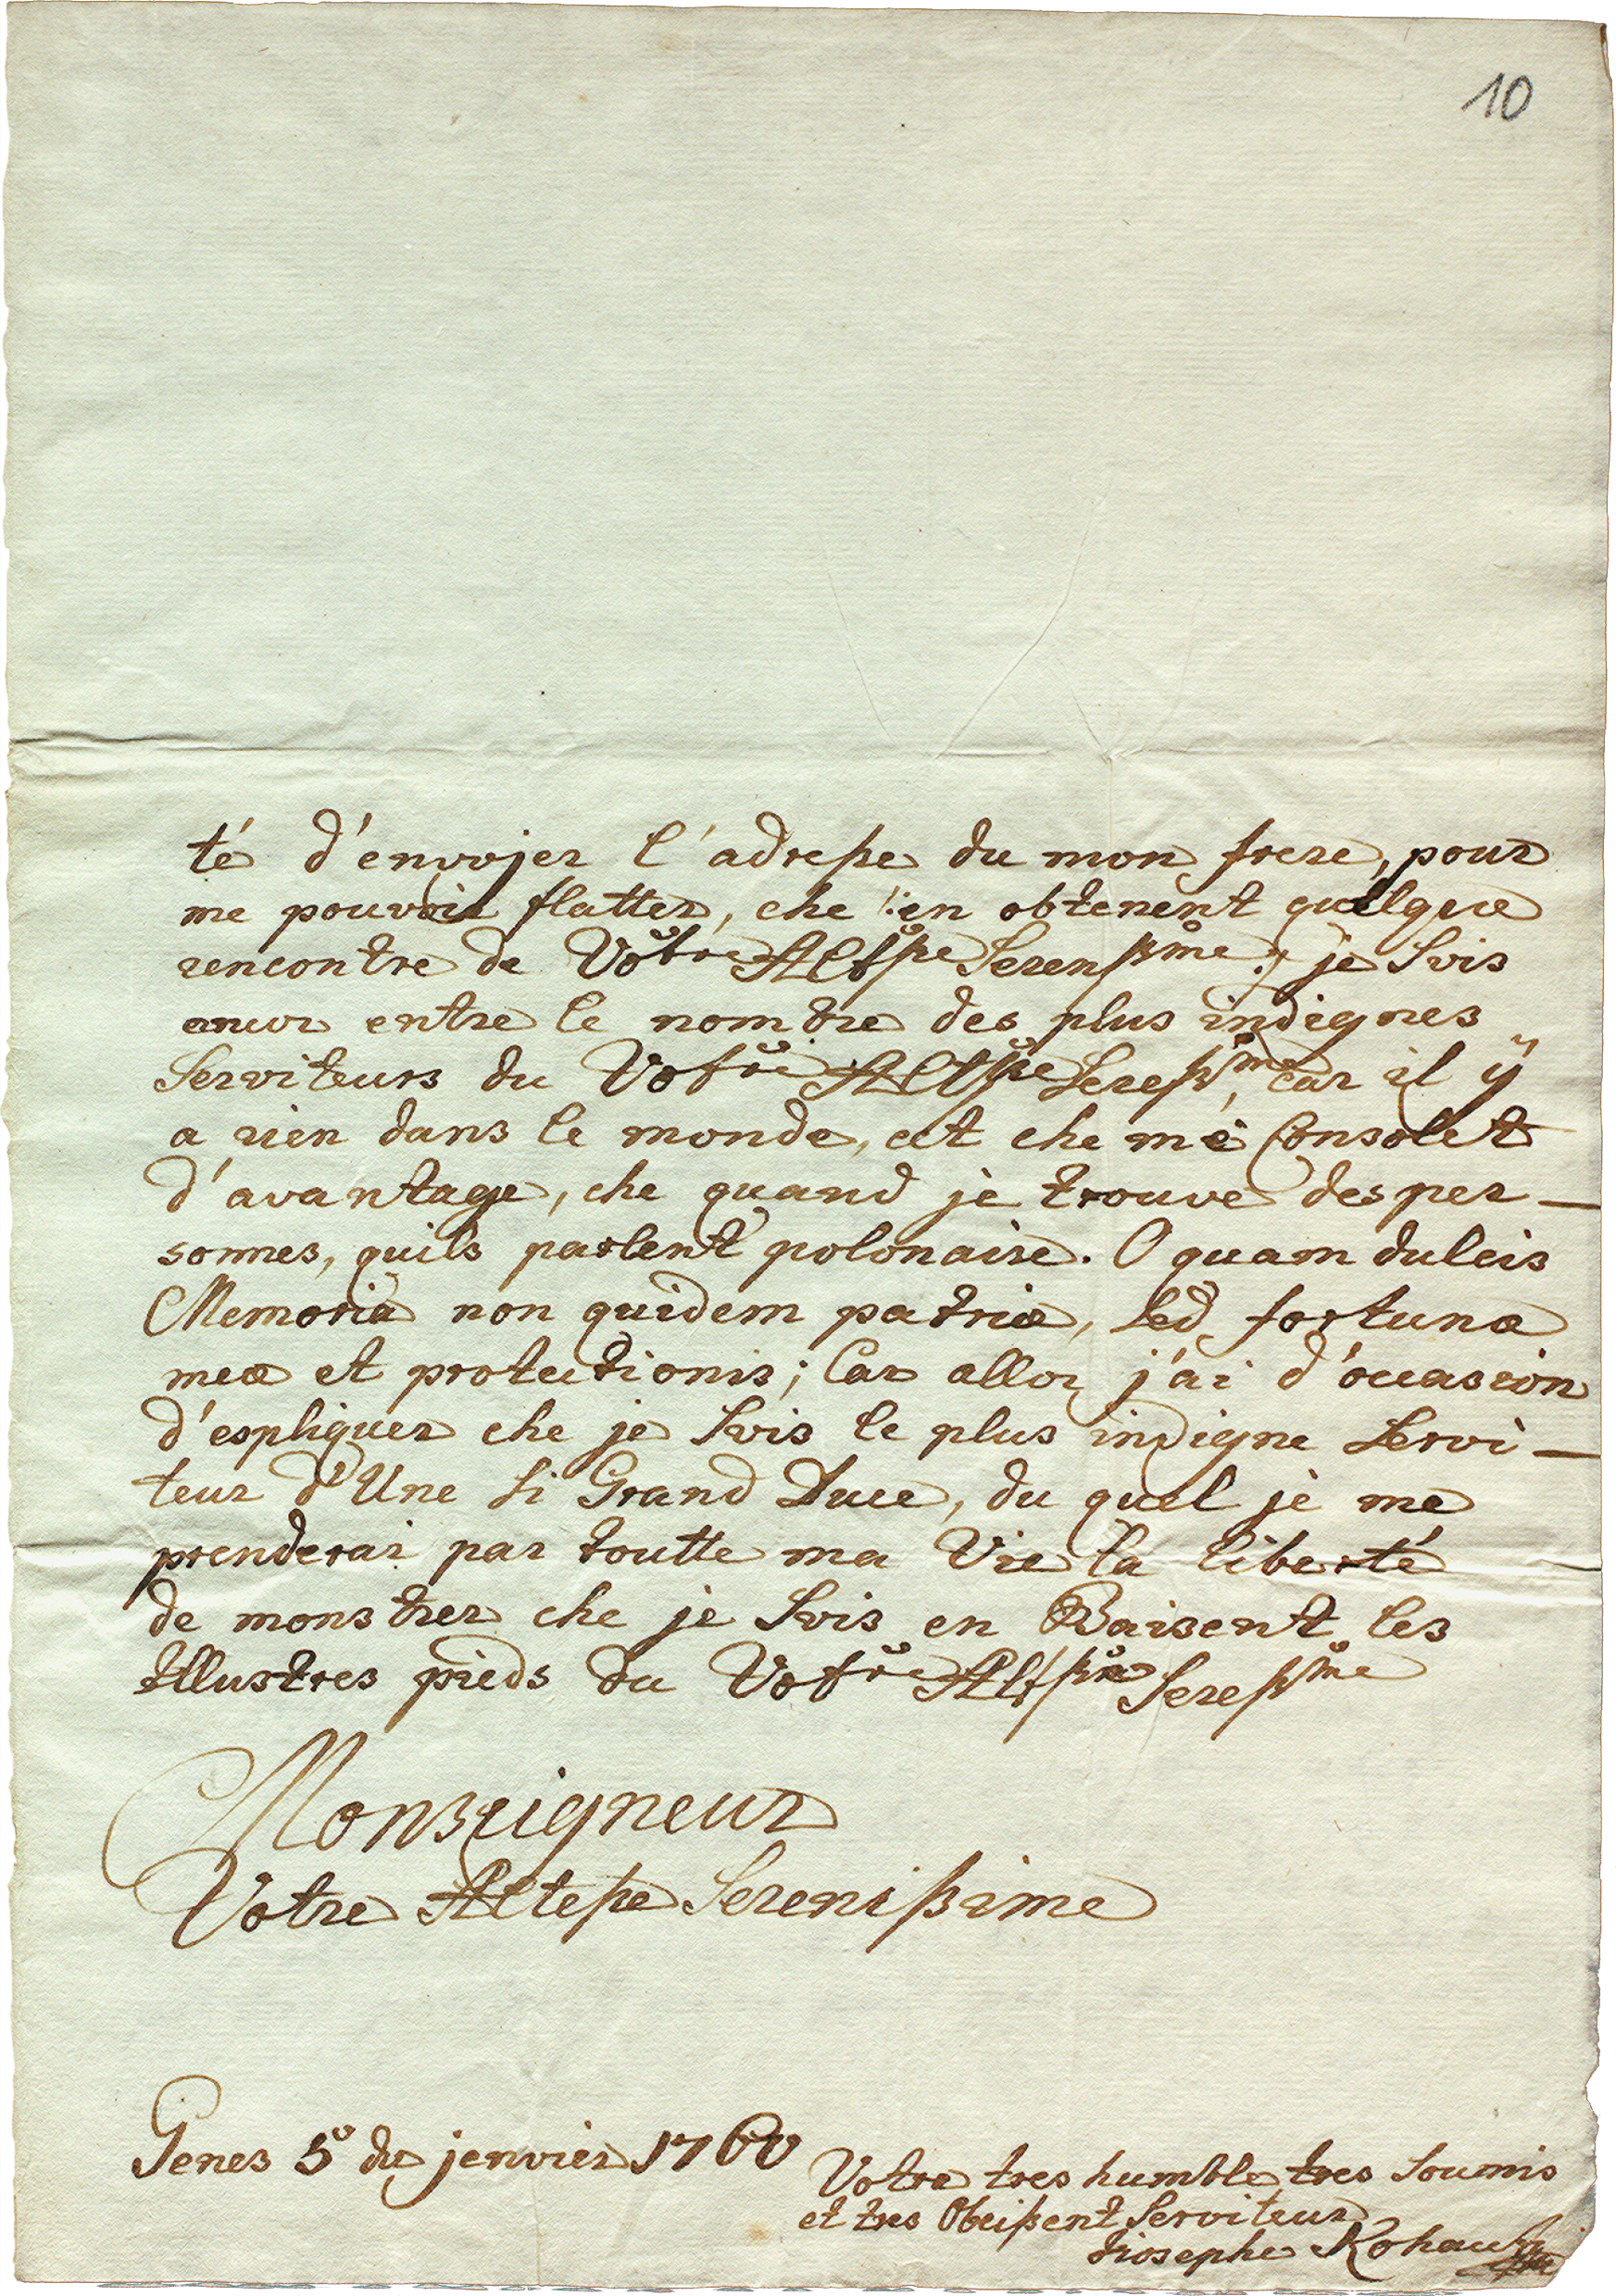 10
té d'envojer l'adresse du mon frere, pour
me pouvoir flatter, che en obtenent quelque
rencontre de Votre Altsse Serenssme je suis
encor entre le nombre des plus indignes
Serviteurs du Votre Altsse Seressme, car il ÿ
a rien dans le monde, cet che me Consolet
d'avantage, che quand je trouve des per-
sonnes, quils parlent polonaise. O quam dulcis
Memoria non quidem patriæ, sed fortunæ
meæ et protectionis; Car allor j'ai d'ocasion
d'espliquer che je suis le plus indigne Servi-
teur d'Une si Grand Duce, du quel je me
prenderai par toutte ma Vie la liberté
de monstrer che je suis en Baisent les
Illustres pieds du Votre Altsse Seressme
Monseigneur
Votre Altesse Serenissime
Genes 5 du jenvier 1760
Votre tres humble tres soumis
et tres Obeissent Serviteur
Giosephe Kohautt